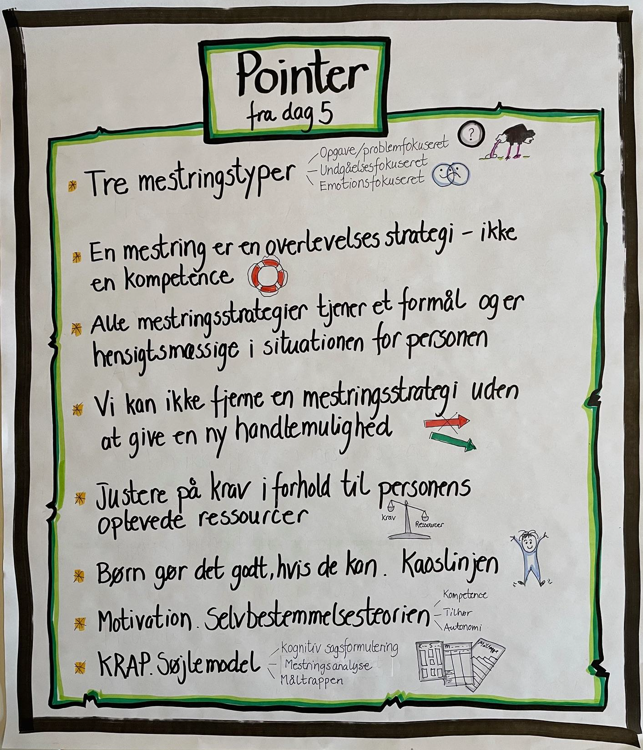 Pointer
fra dag 5
Tre mestringstyper
Opgave/problemfokuseret
Undgåelsesfokuseret
Emotionsfokuseret
?
En mestring er en overlevelses strategi - ikke
en kompetence
Alle mestringsstrategier tjener et formål og er
hensigtsmæssige i situationen for personen
Vi kan ikke fjerne en mestringsstrategi uden
at give en ny handlemulighed
Justere på krav i forhold til personens
oplevede ressourcer
Krav
Ressourcer
Børn gør det godt, hvis de kan. Kaoslinjen
Motivation. Selvbestemmelsesteorien
Kompetence
Tilhør
Autonomi
KRAP. Søjlemodel
Kognitiv sagsformulering
Mestringsanalyse
Måltrappen